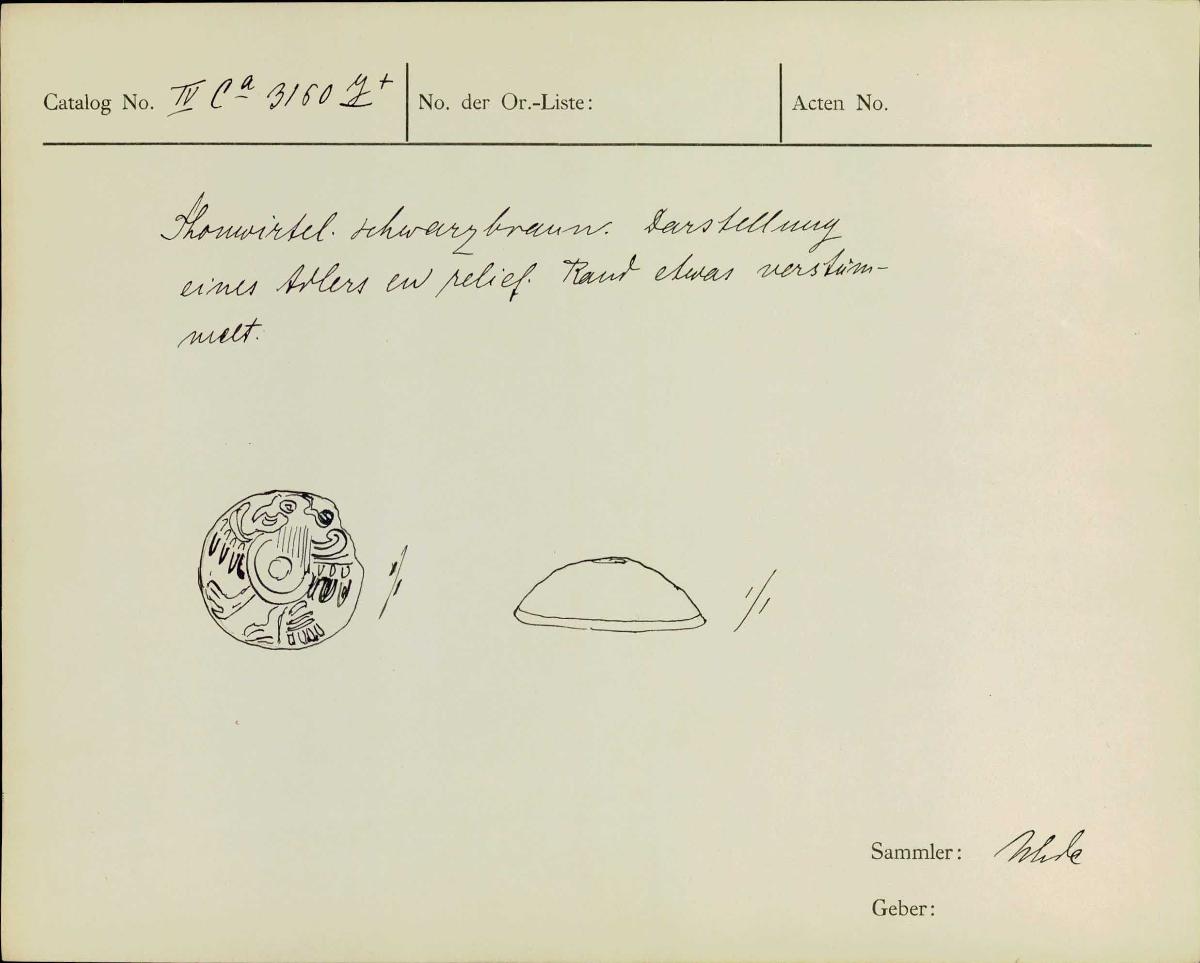 Catalog No. IV Ca 3160 y+ No. der Or.-Liste: Acten No.
Thonwirtel. schwarzbraun. Darstellung
eines Adlers en relief. Rand etwas verstüm-
melt.
1/1
1/1
Sammler: Uhde
Geber: